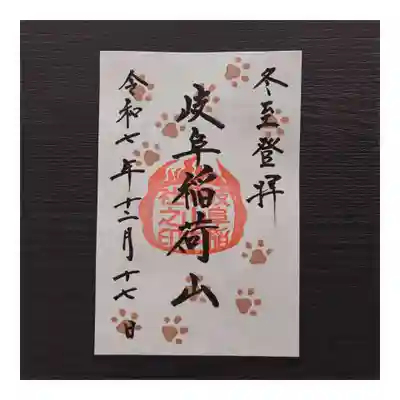 冬至登拝
岐阜稲荷山
令和七年十二月十七日